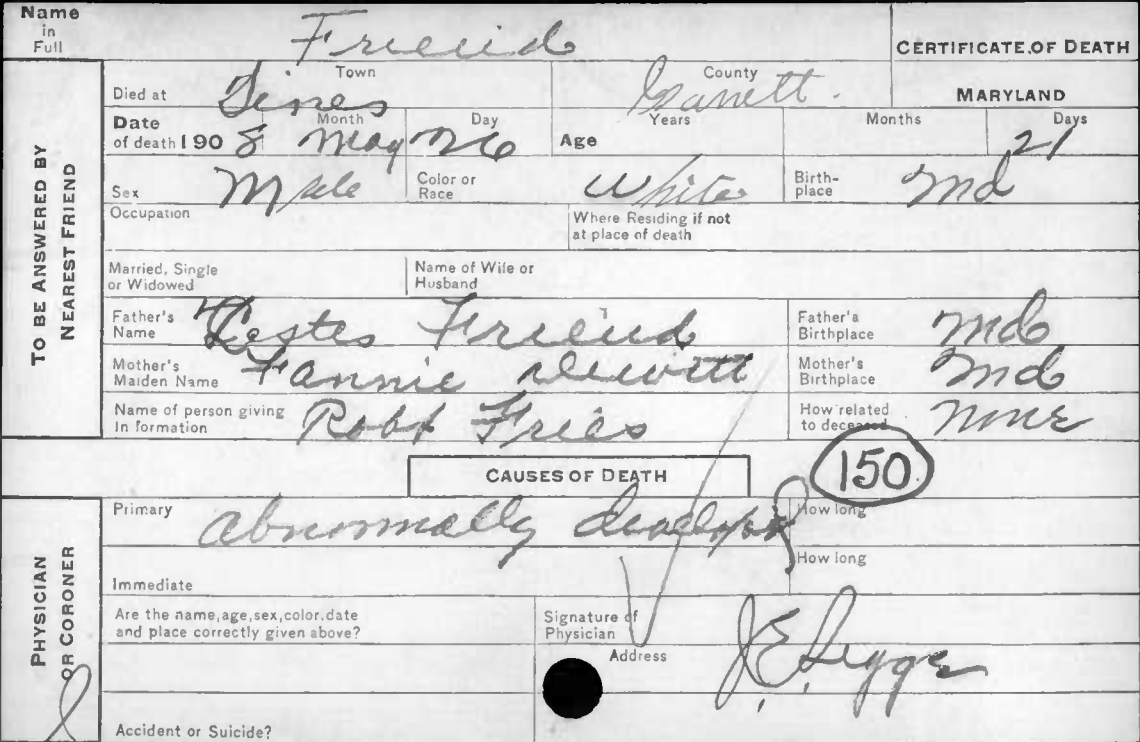 Name in Full Friend
CERTIFICATE OF DEATH
TO BE ANSWERED BY NEAREST FRIEND
Died at Town County Garrett. MARYLAND
Date of death 1908 Month May Day 26 Age Years Months Days 21
Sex Male Color or Race White Birth-place Md
Occupation Where Residing if not at place of death
Married, Single or Widowed Name of Wife or Husband
Father's Name Friend Father's Birthplace Md
Mother's Maiden Name Fannie Dewitt Mother's Birthplace Md
Name of person giving In formation Robt How related to deceased None
CAUSES OF DEATH 150
PHYSICIAN OR CORONER
Primary abnormally How long
Immediate How long
Are the name, age, sex, color, date and place correctly given above? Signature of Physician
Address
Accident or Suicide?